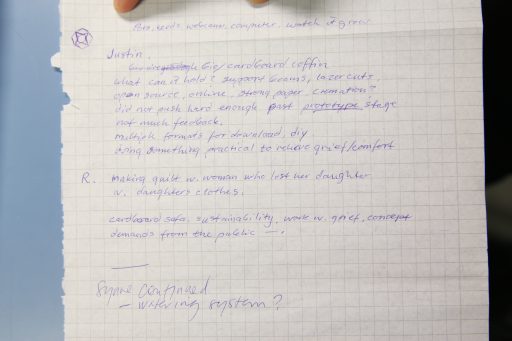 seeds, webcam, computer, watch it grow
Justin.
bio/cardboard coffin
what can it hold? support beams, lazer cuts,
open source, online, strong paper, cremation?
did not push hard enough past prototype stage
not much feedback.
multiple formats for download, diy
doing something practical to relieve grief/comfort
R. making quilt w. woman who lost her daughter
w. daughters clothes.
cardboard sofa, sustainability, work w. grief, concept
demands from the public —.
continued
- watering system?